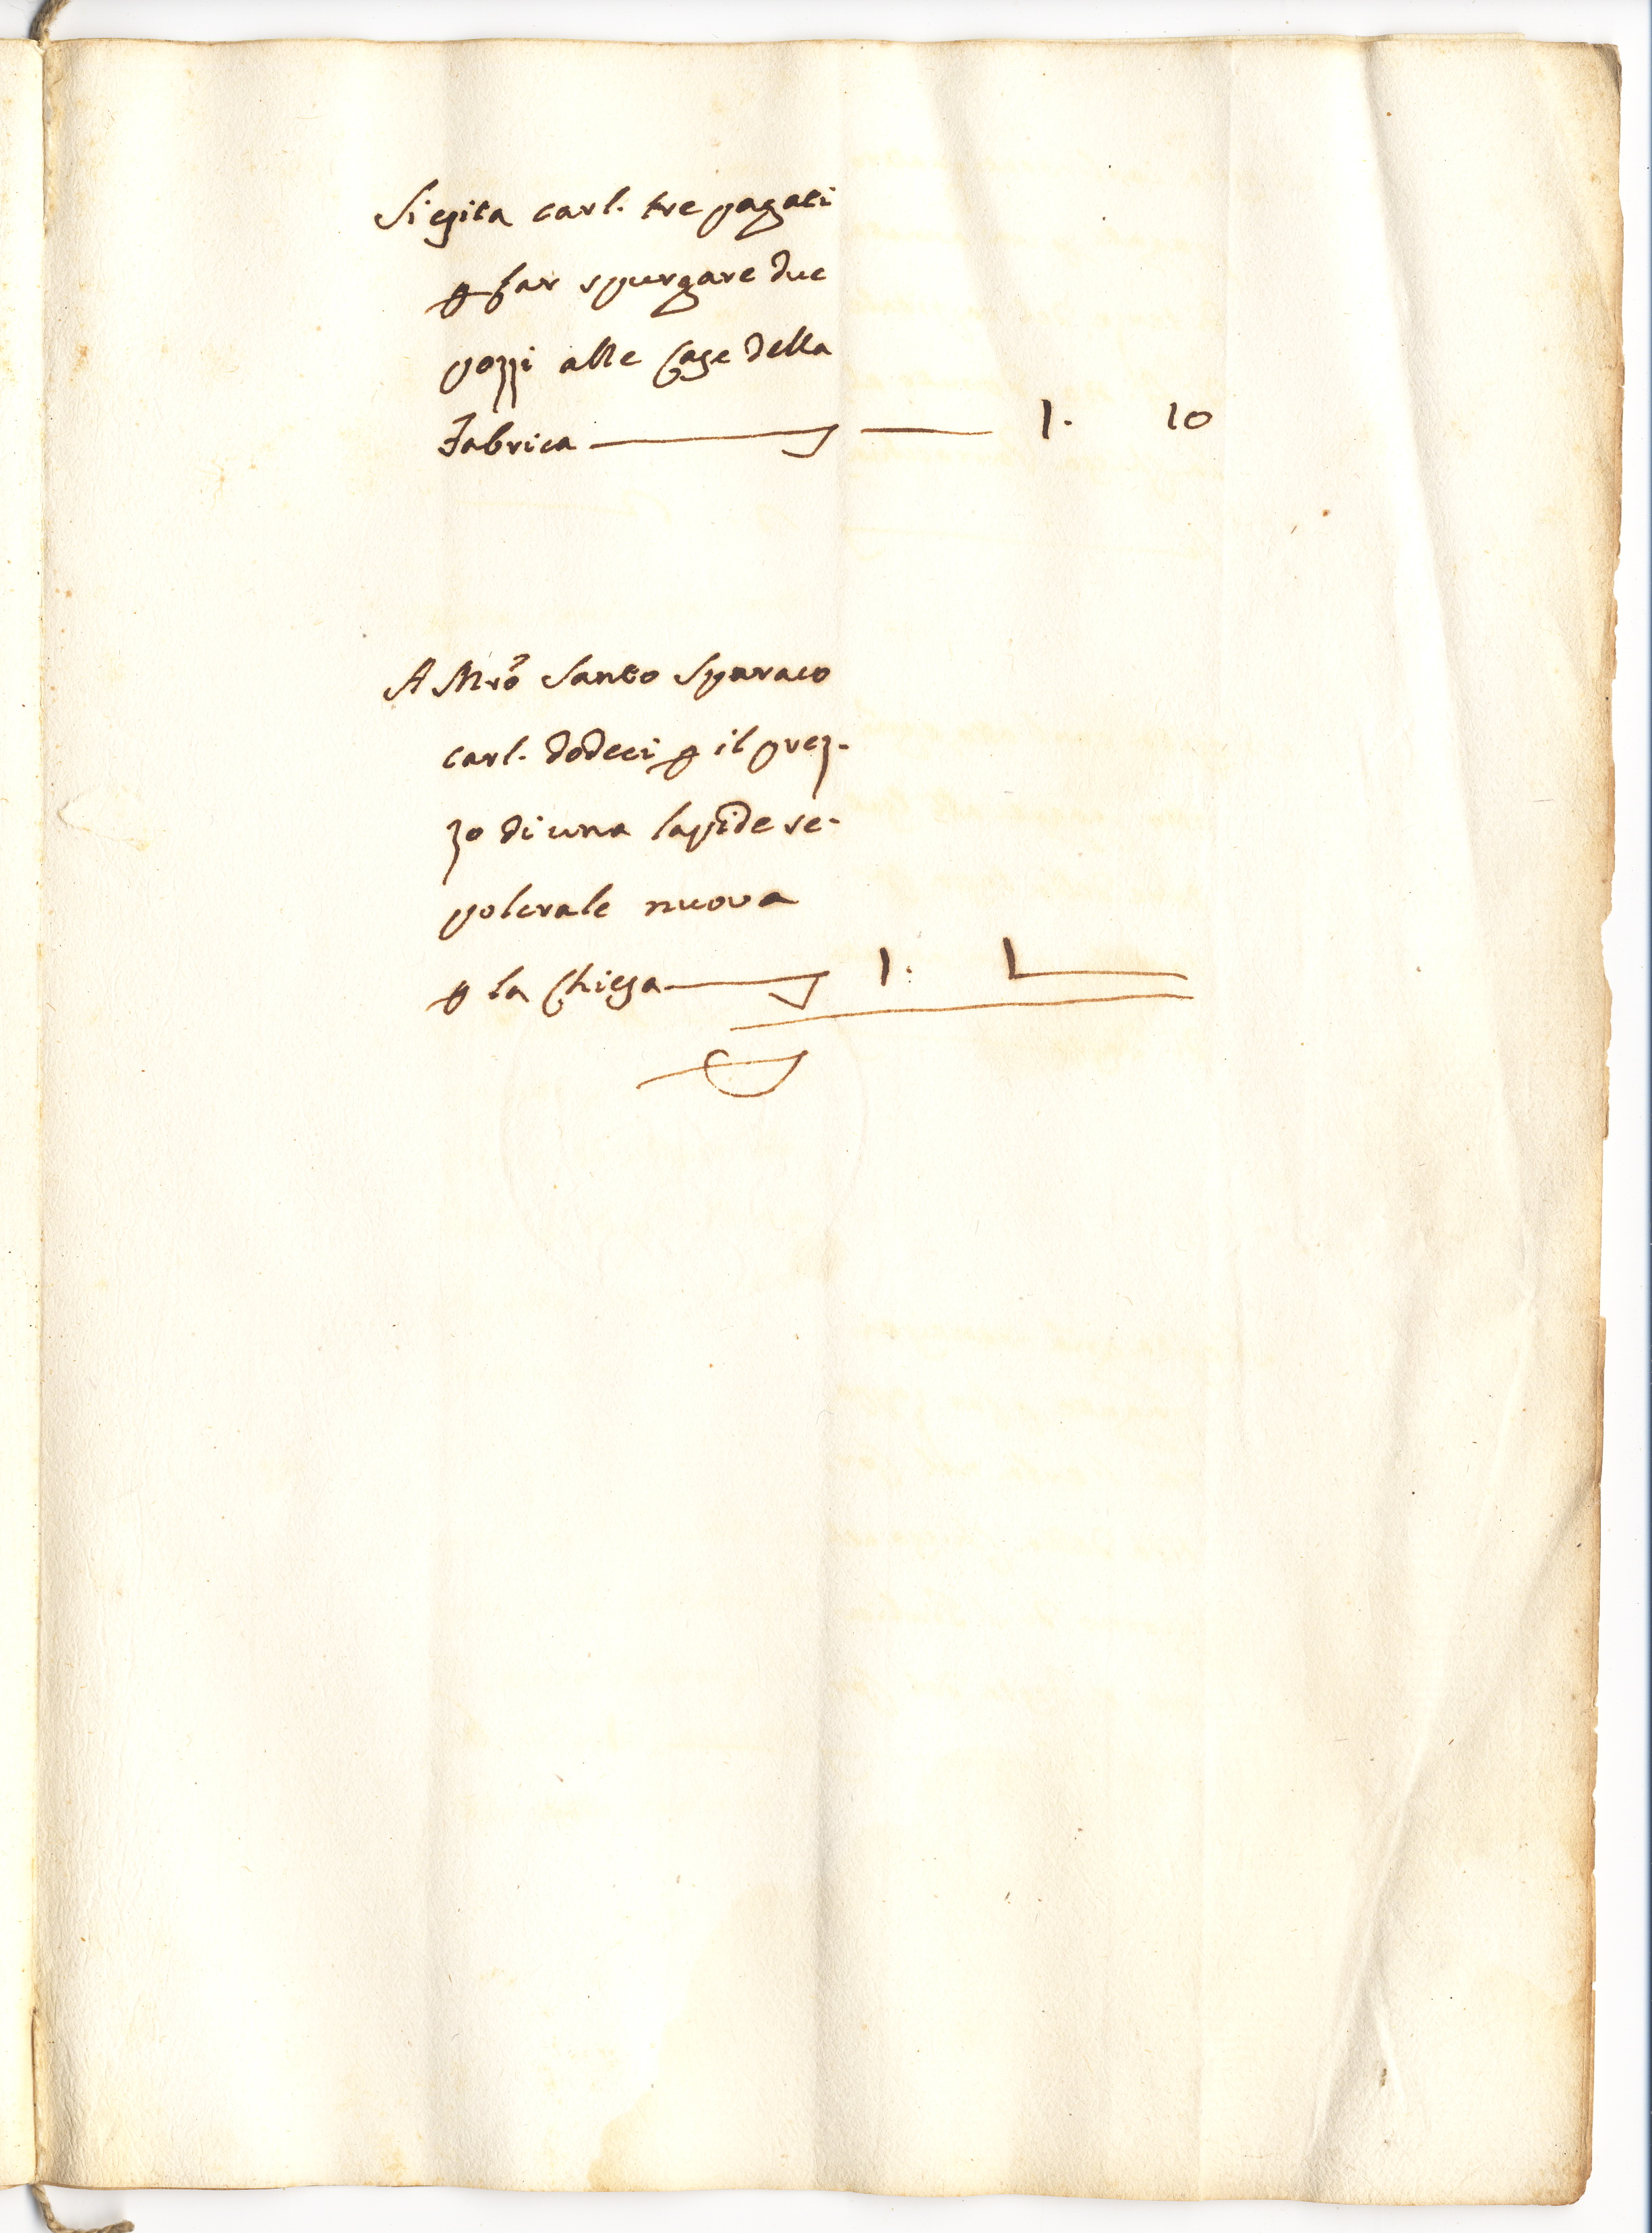 Si esita carl. tre pagati
ꝑ far spurgare due
pozzi alle Case della
Fabrica 1. 10
A Mrõ Santo Sparaco
carl. dodeci ꝑ il prez-
zo di una lapide se-
polcrale nuova
ꝑ la Chiesa 1: 1